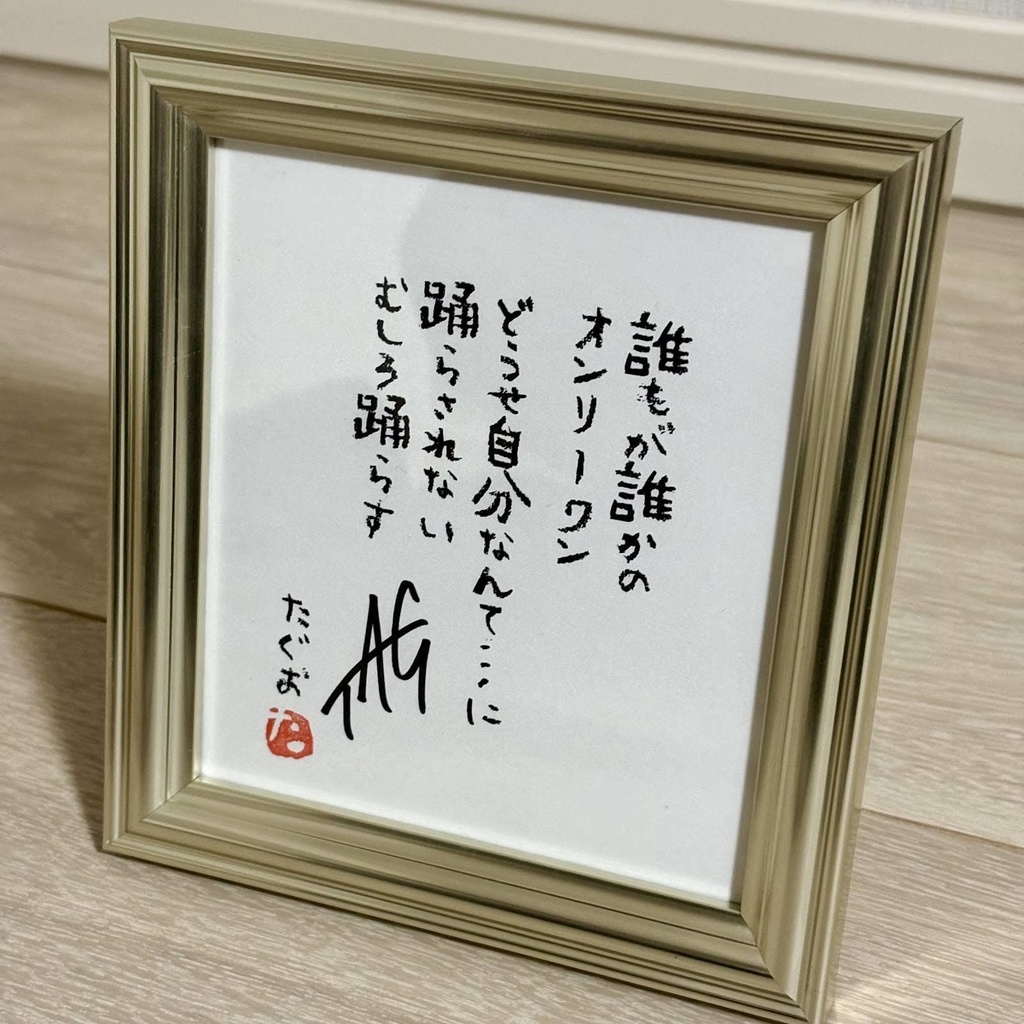 誰もが誰かの
オンリーワン
どうせ自分なんて…に
踊らされない
むしろ踊らす
TAG
たぐお